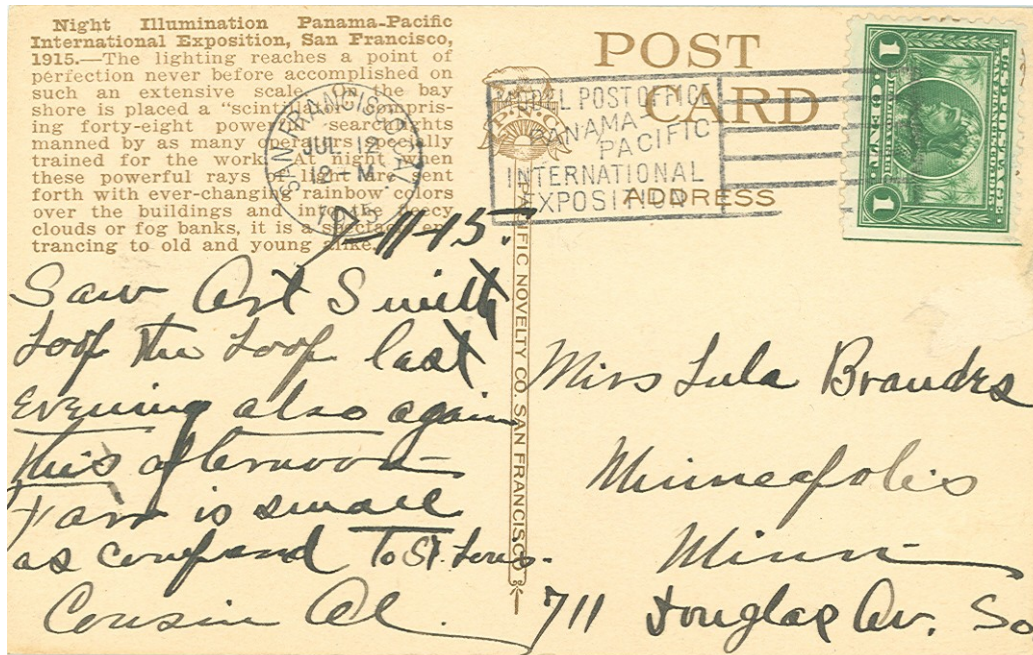 Night Illumination Panama-Pacific
International Exposition, San Francisco,
1915.—The lighting reaches a point of
perfection never before accomplished on
such an extensive scale. On the bay
shore is placed a "scintillator" compris-
ing forty-eight powerful searchlights
manned by as many operators specially
trained for the work. At night when
these powerful rays of light are sent
forth with ever-changing rainbow colors
over the buildings and into the fleecy
clouds or fog banks, it is a spectacle en-
trancing to old and young alike.
SAN FRANCISCO, CAL.
JUL. 12
12-M
1915
MODEL POST OFFICE
PANAMA-
PACIFIC
INTERNATIONAL
EXPOSITION
POST
CARD
P.N.C.
ADDRESS
1 CENT 1
7-11-15.
Saw Art Smith
Loop the Loop last
Evening also again
this afternoon
Fair is small
as compared to St. Louis.
Cousin Al.
PACIFIC NOVELTY CO. SAN FRANCISCO
Miss Lula Brandes
Minneapolis
Minn
711 Douglas Av. So